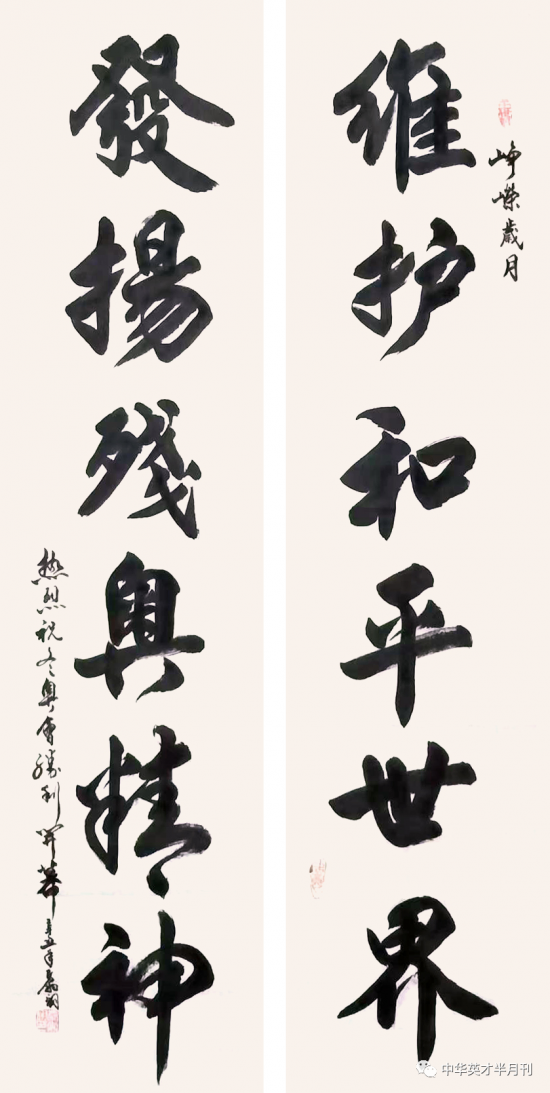 峥嵘歲月
维护和平世界
發揚殘奥精神
热烈祝冬奥会勝利开幕
辛丑年
中华英才半月刊